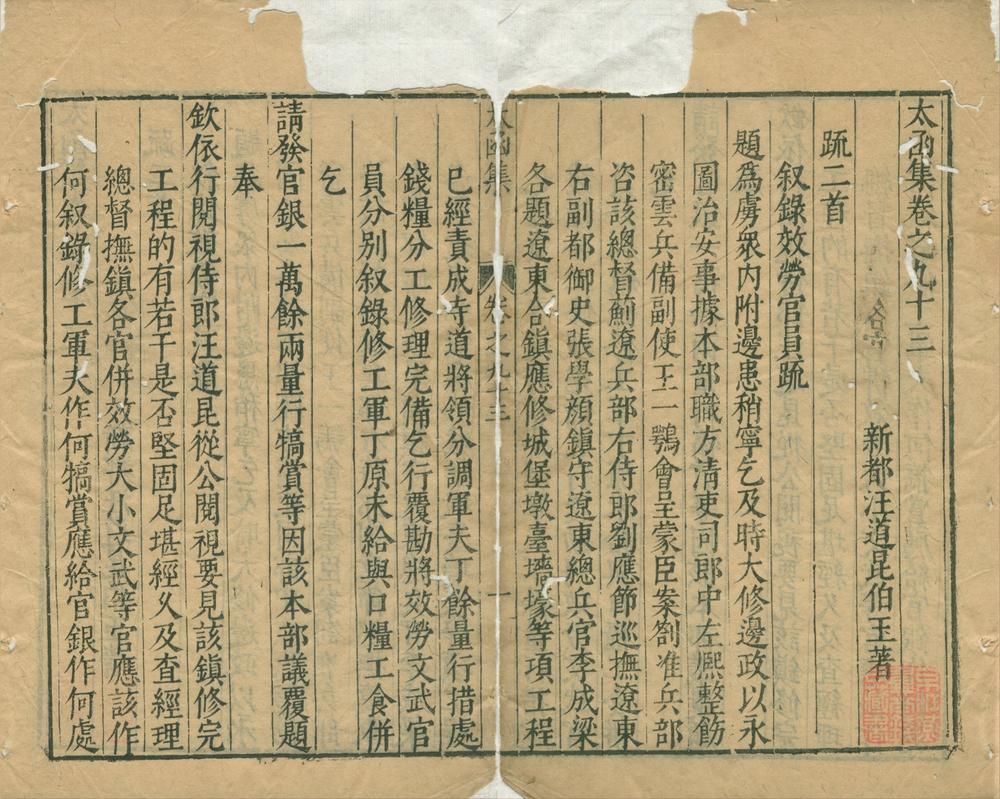 太函集卷之九十三
新都汪道昆伯玉著
疏二首
叙錄效勞官員疏
題為虜衆內附邊患稍寧乞及時大修邊政以永
圖治安事據本部職方清吏司郎中左熙整飭
密雲兵備副使王一鶚會呈蒙臣案劄准兵部
咨該總督薊遼兵部右侍郎劉應節巡撫遼東
右副都御史張學顏鎮守遼東總兵官李成梁
各題遼東合鎮應修城堡墩臺墻壕等項工程
太函集 卷之九十三 一
已經責成寺道將領分調軍夫丁餘量行措處
錢糧分工修理完備乞行覆勘將效勞文武官
員分別叙錄修工軍丁原未給與口糧工食併
乞
請發官銀一萬餘兩量行犒賞等因該本部議覆題
奉
欽依行閱視侍郎汪道昆從公閱視要見該鎮修完
工程的有若干是否堅固足堪經久及查經理
總督撫鎮各官併效勞大小文武等官應該作
何叙錄修工軍夫作何犒賞應給官銀作何處